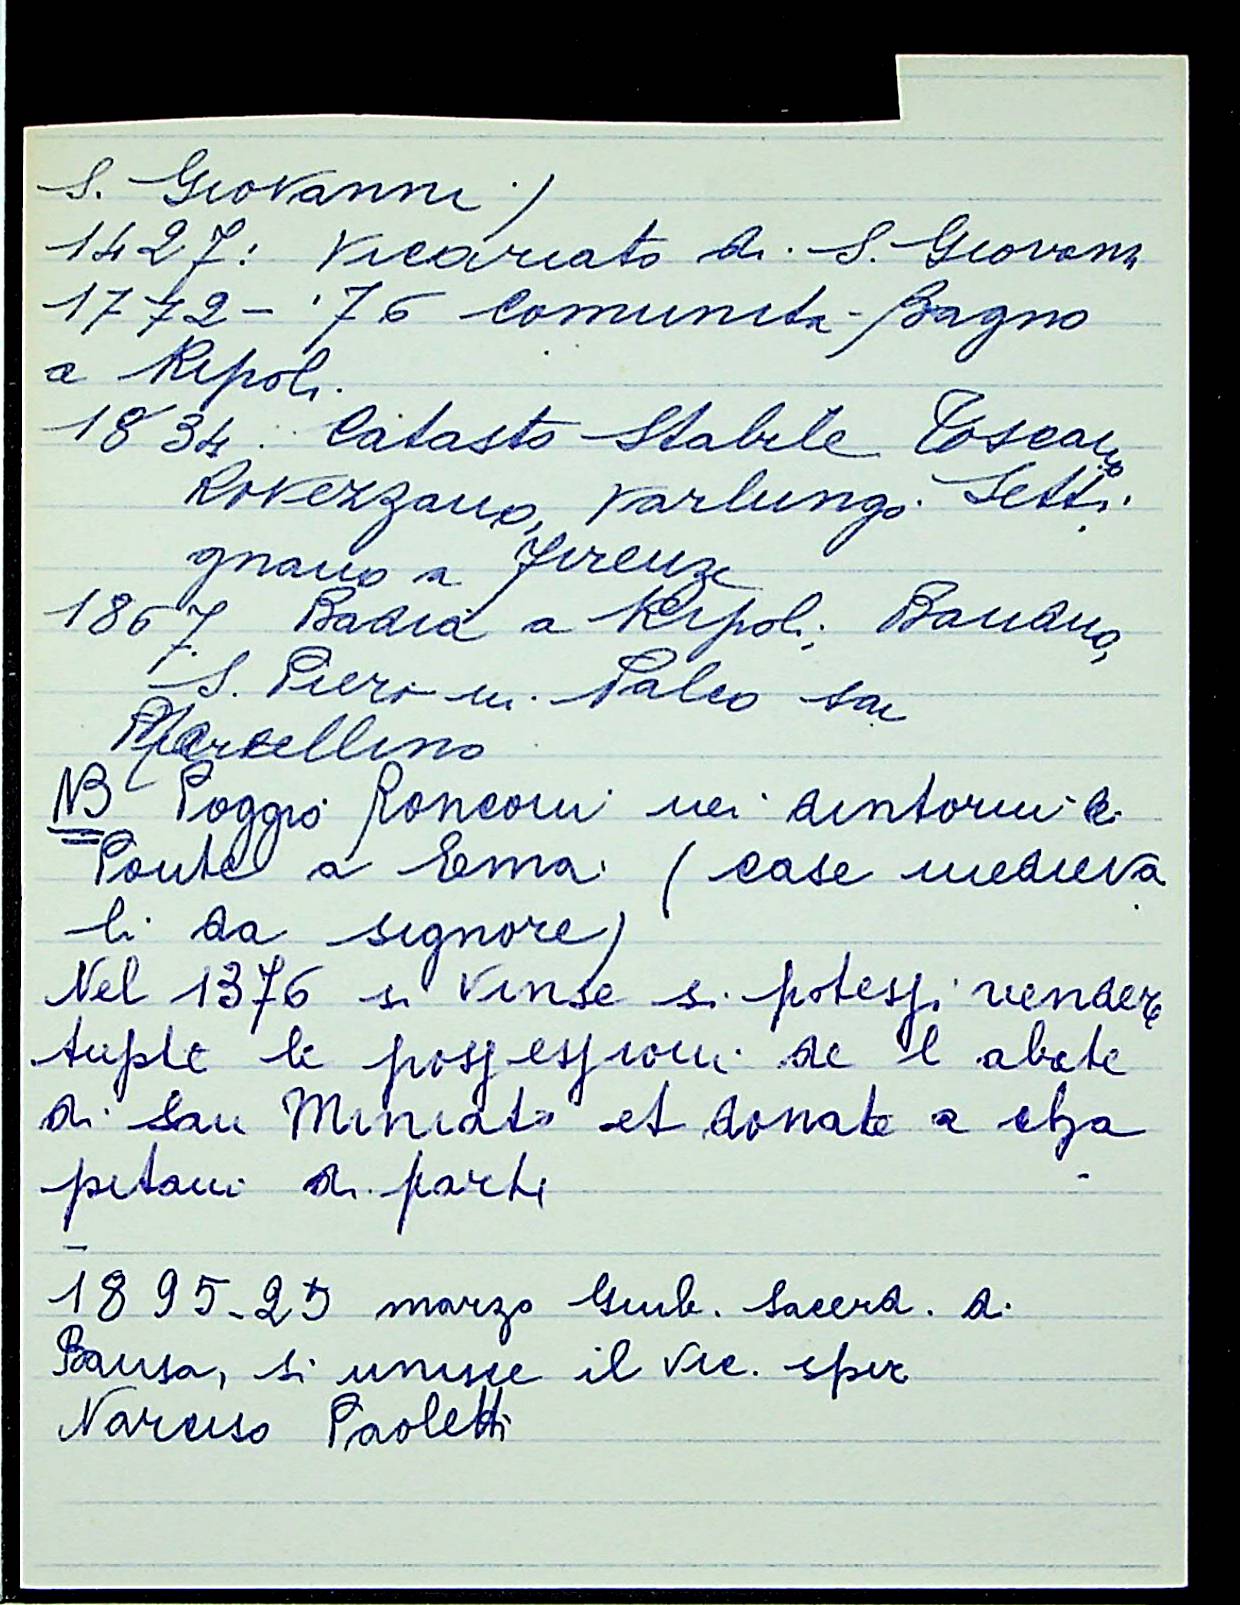 S. Giovanni.)
1427: Vicariato di S. Giovanni
1772-'76 Comunità Bagno
a Ripoli.
1834. Catasto Stabile Toscano
Rovezzano, Varlungo. Setti.
gnano a Firenze
1867 Badia a Ripoli; Bandino,
S. Piero in Palco san
Marcellino
NB Poggio Ronconi nei dintorni di
Ponte a Ema. (case medieva
li da signore)
Nel 1376 si vinse si potessi vendere
tuple le possessioni de l abate
di San Miniato et donate a cha
pitani di parte
-
1895-25 marzo Giub. Sacerd. di
Bausa, si unisce il vic. spir
Narciso Paoletti